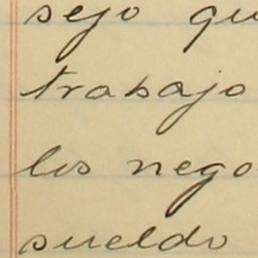 sejo qu
trabajo
los nego
sueldo